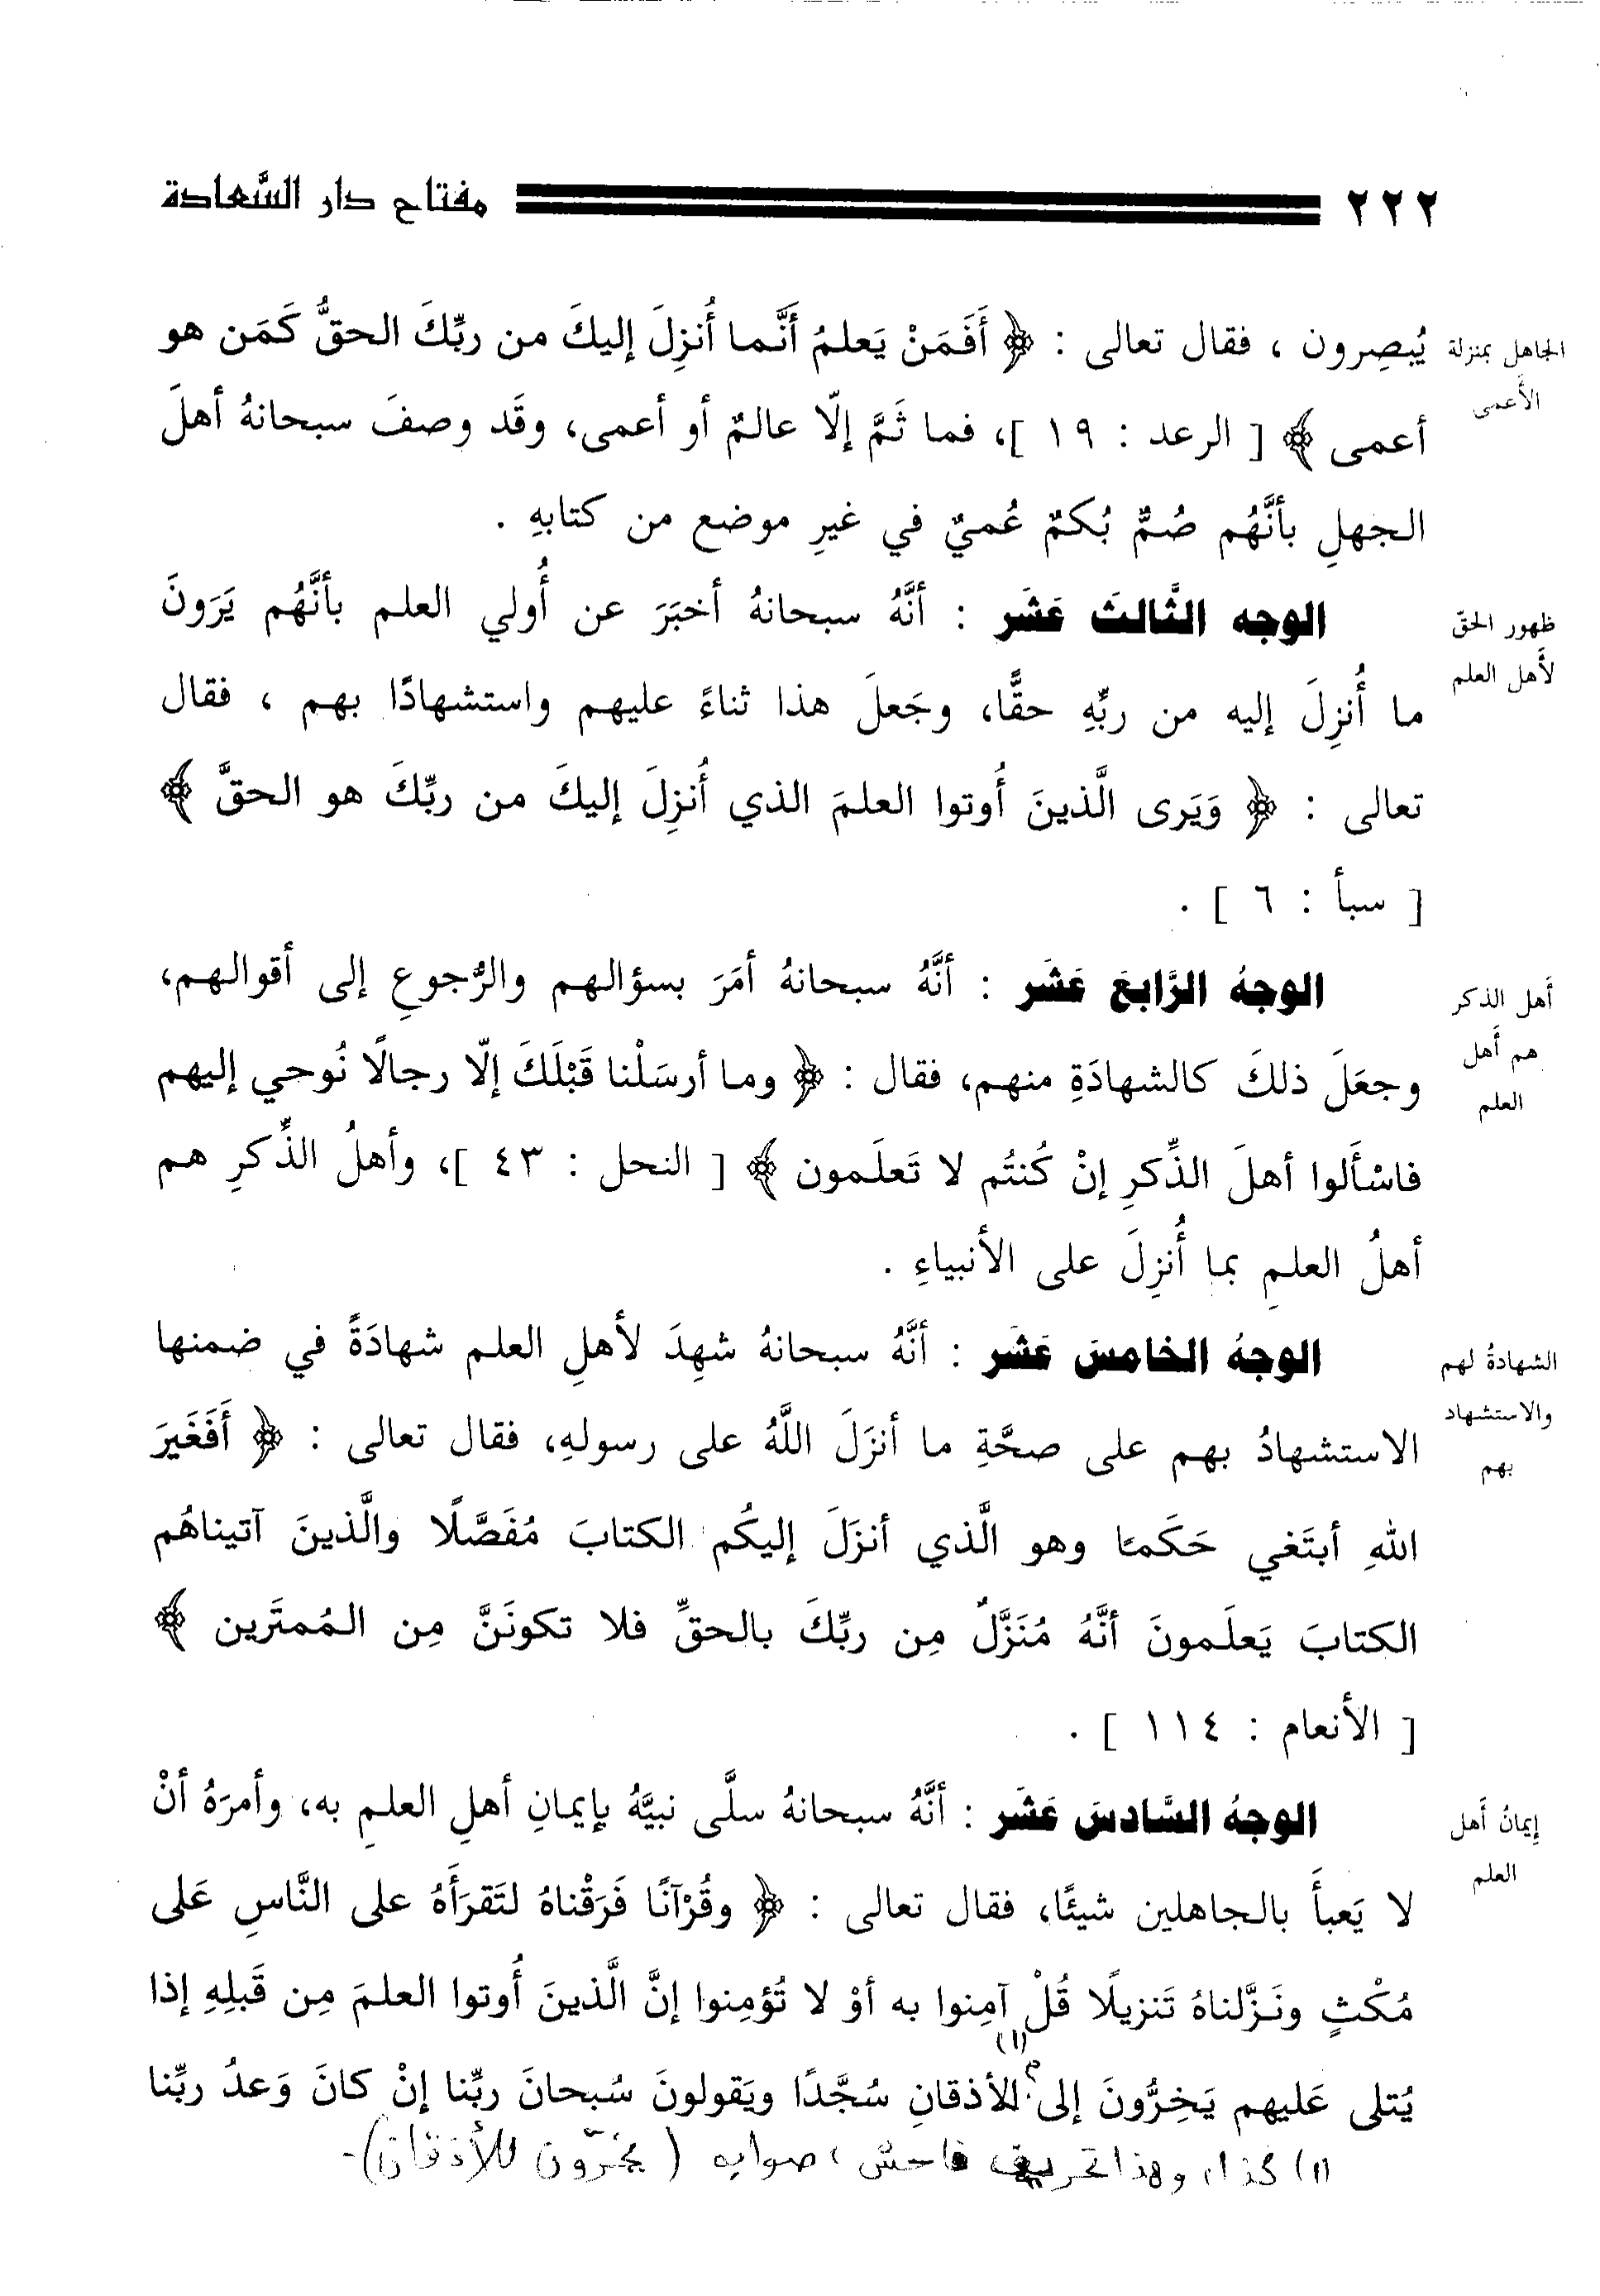 ٢٢٢ مفتاح دار السَّعادة
الجاهل بمنزلة
الأَعمى
يُبصِرون ، فقال تعالى : ﴿ أَفَمَنْ يَعلمُ أَنَّما أُنزِلَ إليكَ من ربِّكَ الحقُّ كَمَن هو
أعمى ﴾ [ الرعد : ١٩ ]، فما ثَمَّ إلّا عالمٌ أو أعمى، وقَد وصفَ سبحانهُ أهلَ
الجهلِ بأنَّهُم صُمٌّ بُكمٌ عُميٌ في غيرِ موضع من كتابهِ .
ظهور الحقّ
لأَهل العلم
الوجه الثَّالثَ عَشَر : أنَّهُ سبحانهُ أخبَرَ عن أُولي العلم بأنَّهُم يَرَونَ
ما أُنزِلَ إليه من ربِّهِ حقًّا، وجَعلَ هذا ثناءً عليهم واستشهادًا بهم ، فقال
تعالى : ﴿ وَيَرى الَّذينَ أُوتوا العلمَ الذي أُنزِلَ إليكَ من ربِّكَ هو الحقَّ ﴾
[ سبأ : ٦ ] .
أهل الذكر
هم أَهل
العلم
الوجهُ الرَّابعَ عَشَر : أنَّهُ سبحانهُ أمَرَ بسؤالهم والرُّجوعِ إلى أقوالهم،
وجعَلَ ذلكَ كالشهادَةِ منهم، فقال : ﴿ وما أرسَلْنا قَبْلَكَ إلّا رجالًا نُوحي إليهم
فاسْألوا أهلَ الذِّكرِ إنْ كُنتُم لا تَعلَمون ﴾ [ النحل : ٤٣ ]، وأهلُ الذِّكرِ هم
أهلُ العلمِ بما أُنزِلَ على الأنبياءِ .
الشهادةُ لهم
والاستشهاد
بهم
الوجهُ الخامسَ عَشَر : أنَّهُ سبحانهُ شهِدَ لأهلِ العلم شهادَةً في ضمنها
الاستشهادُ بهم على صحَّةِ ما أنزَلَ اللَّهُ على رسولهِ، فقال تعالى : ﴿ أَفَغَيرَ
اللهِ أبتَغي حَكَمًا وهو الَّذي أنزَلَ إليكُم الكتابَ مُفَصَّلًا والَّذينَ آتيناهُم
الكتابَ يَعلَمونَ أنَّهُ مُنَزَّلٌ مِن ربِّكَ بالحقِّ فلا تكونَنَّ مِن المُمتَرين ﴾
[ الأنعام : ١١٤ ] .
إيمانُ أَهل
العلم
الوجهُ السَّادسَ عَشَر : أنَّهُ سبحانهُ سلَّى نبيَّهُ بإيمانِ أهلِ العلمِ به، وأمرَهُ أنْ
لا يَعبأَ بالجاهلين شيئًا، فقال تعالى : ﴿ وقُرْآنًا فَرَقْناهُ لتَقرَأَهُ على النَّاسِ عَلى
مُكْثٍ ونَزَّلناهُ تَنزيلًا قُلْ آمِنوا به أوْ لا تُؤمِنوا إنَّ الَّذينَ أُوتوا العلمَ مِن قَبلِهِ إذا
يُتلى عَليهم يَخِرُّونَ إلى للأذقانِ (١) سُجَّدًا ويَقولونَ سُبحانَ ربِّنا إنْ كانَ وَعدُ ربِّنا
(١) كذا، وهذا تحريف فاحش ، صوابه ( يخرّون للأذقان ).